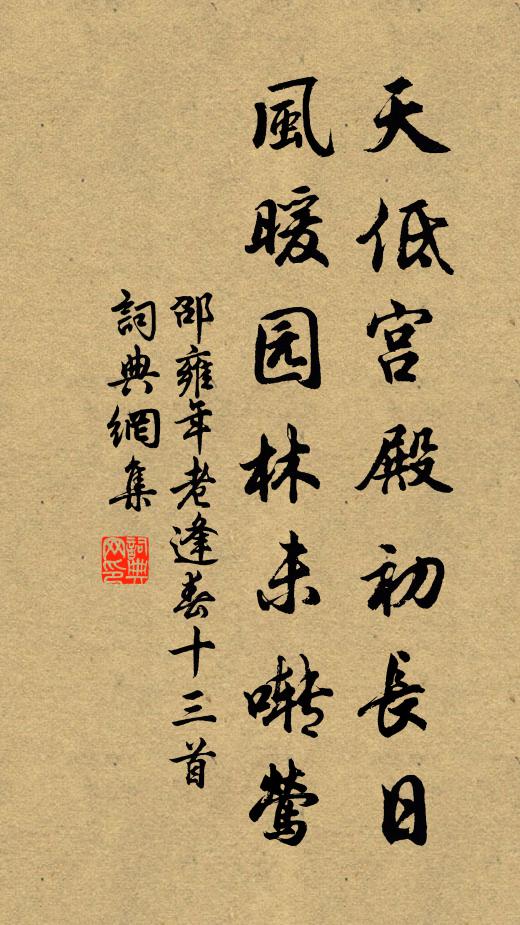 天低宫殿初長日
風暖园林未囀鶯
邵雍年老逢春十三首
詞典網集
詞典网印